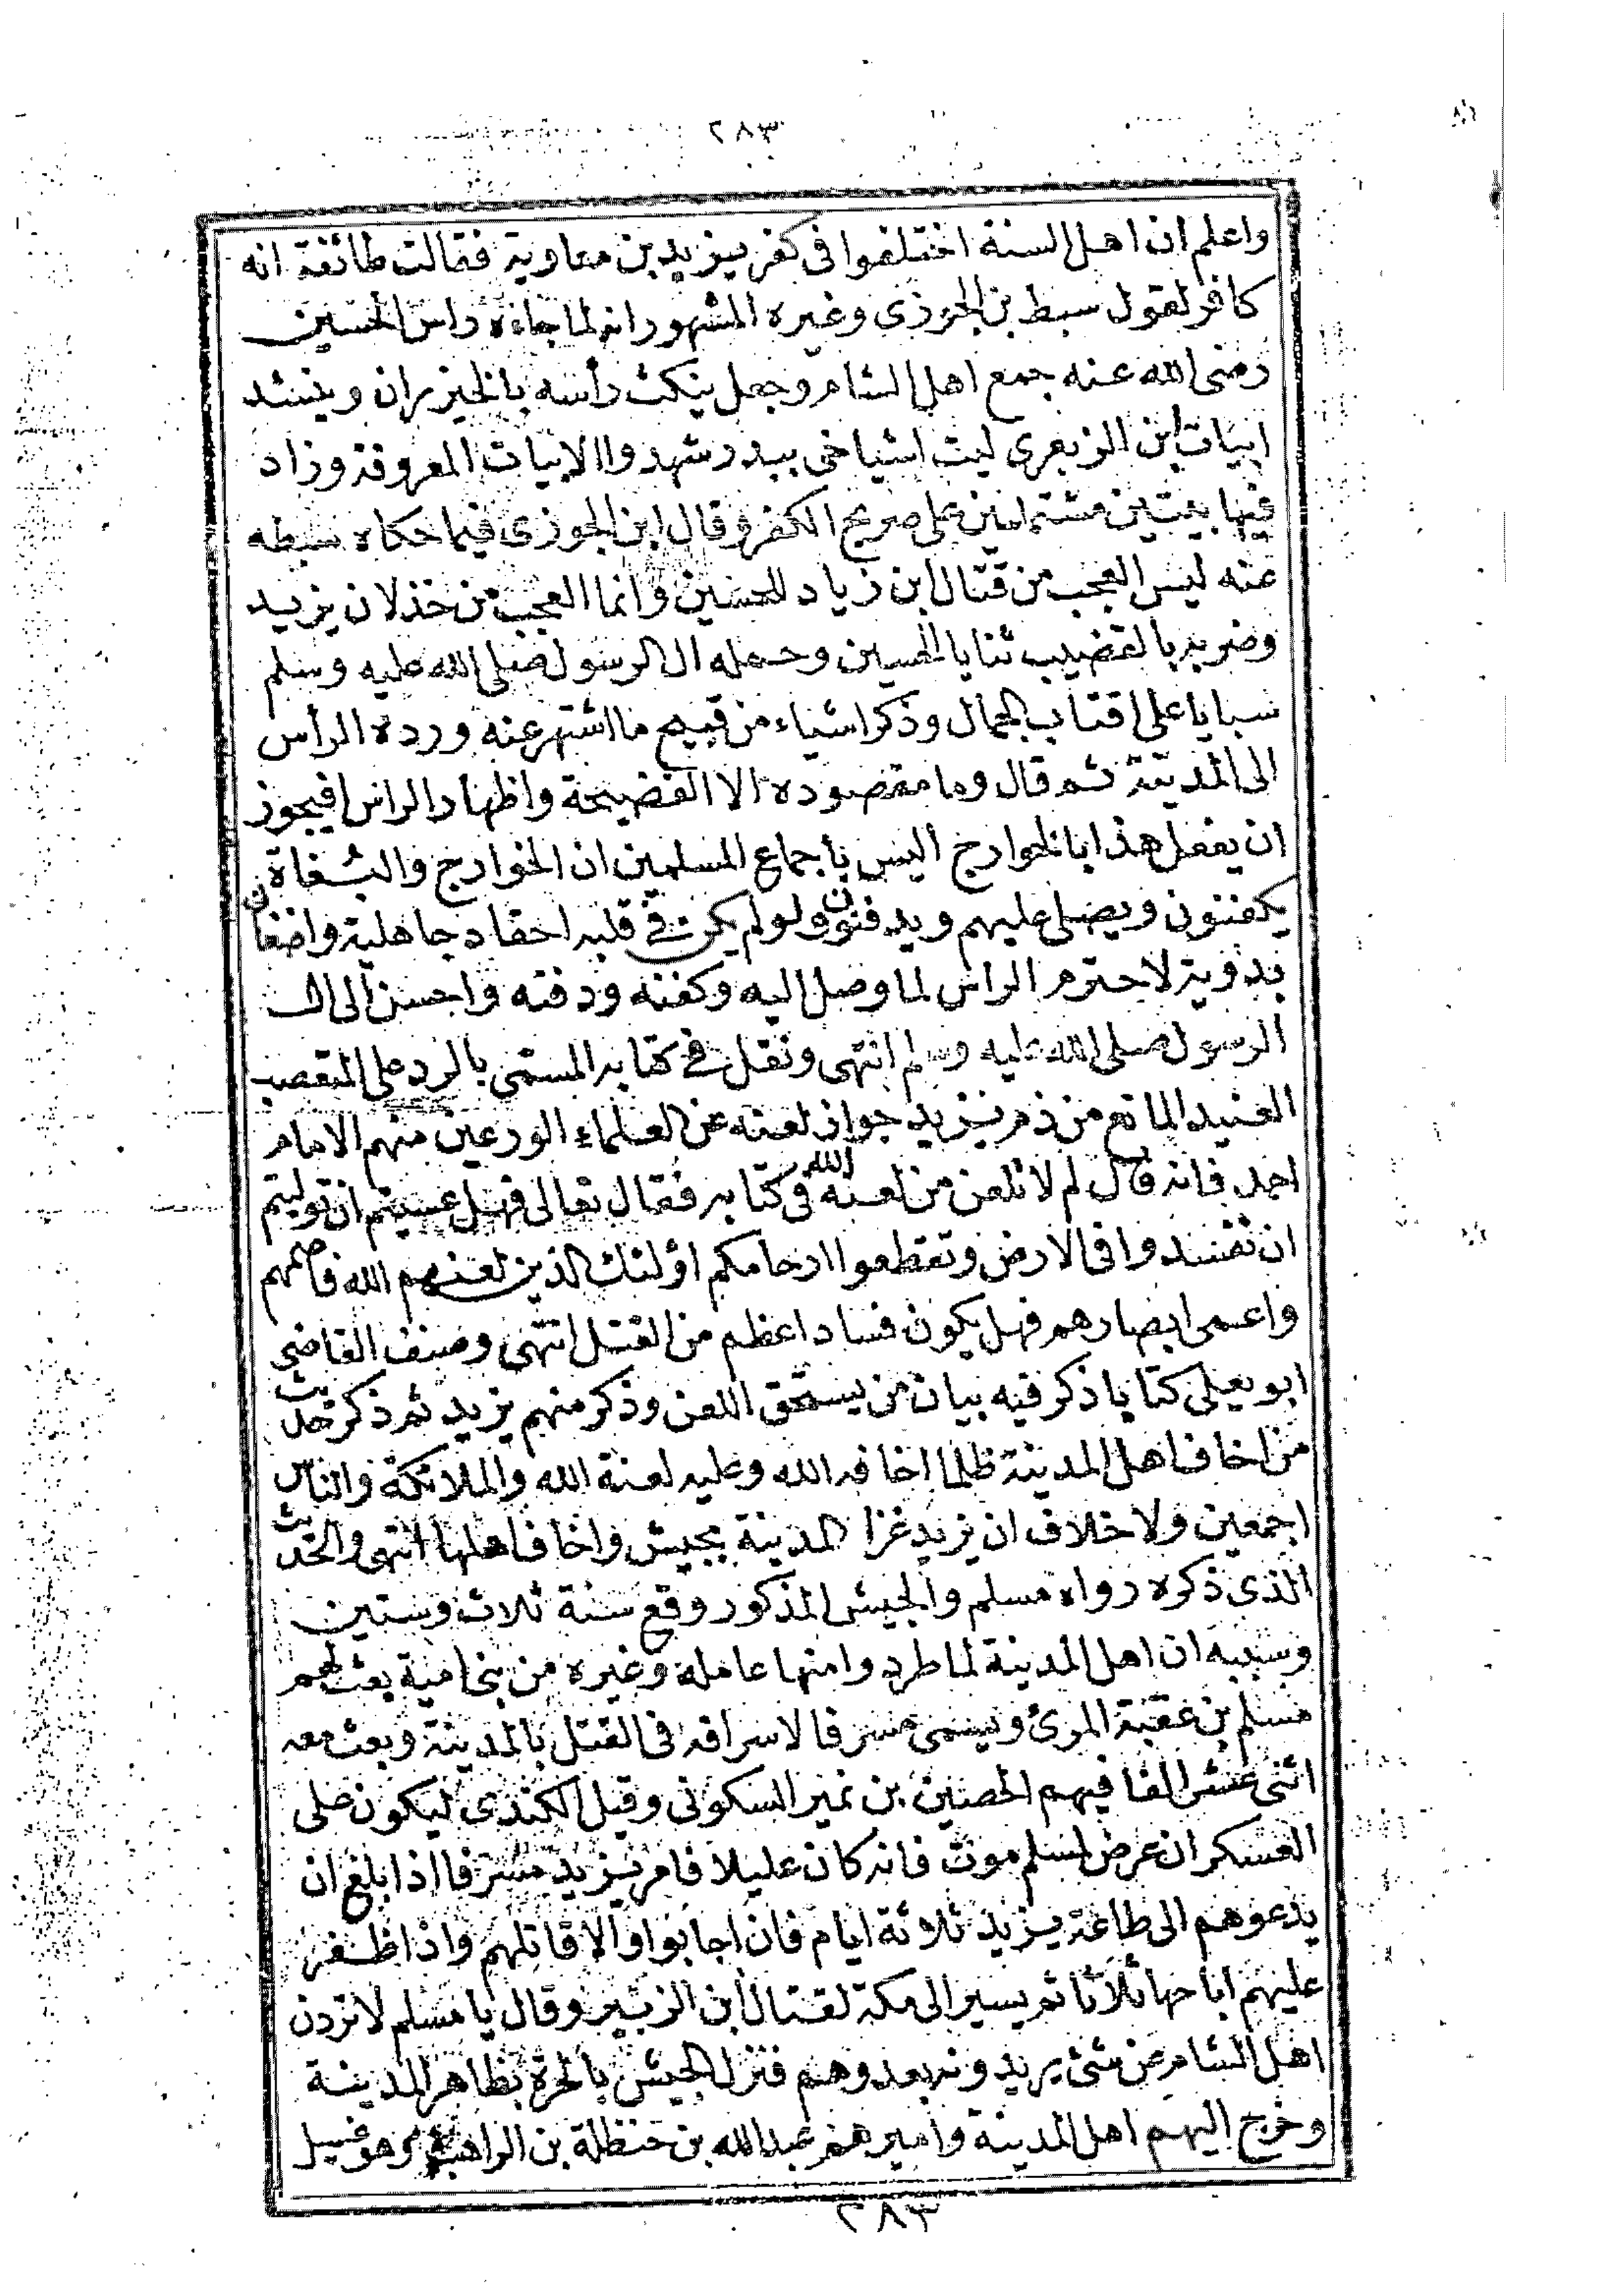 ٢٨٣
واعلم ان اهل السنة اختلفوا فى كفر يزيد بن معاوية فقالت طائفة انه
كافر لقول سبط بن الجوزى وغيره المشهور انه لما جاءه راس الحسين
رضى الله عنه جمع اهل الشام وجعل ينكث رأسه بالخيزران وينشد
ابيات ابن الزبعرى ليت اشياخى ببدر شهدوا الابيات المعروفة وزاد
فيها بيتين مشتملين على صريح الكفر وقال ابن الجوزى فيما حكاه سبطه
عنه ليس العجب من قتال ابن زياد للحسين وانما العجب من خذلان يزيد
وضربه بالقضيب ثنايا الحسين وحمله ال الرسول صلى الله عليه وسلم
سبايا على اقتاب الجمال وذكر اشياء من قبيح ما اشتهر عنه ورده الرأس
الى المدينة ثم قال وما مقصوده الا الفضيحة واظهار الراس افيجوز
ان يفعل هذا بالخوارج أليس بأجماع المسلمين ان الخوارج والبغاة
يكفنون ويصلى عليهم ويدفنون ولو لم يكن فى قلبه احقاد جاهلية واضغان
بدوية لاحترم الراس لما وصل اليه وكفنه ودفنه واحسن الى ال
الرسول صلى الله عليه وسلم انتهى ونقل فى كتابه المسمى بالرد على المتعصب
العنيد المانع من ذم يزيد جواز لعنه عن العلماء الورعين منهم الامام
احمد فانه قال لم لا نلعن من لعنه الله فى كتابه فقال تعالى فهل عسيتم ان توليتم
ان تفسدوا فى الارض وتقطعوا ارحامكم اؤلئك الذين لعنهم الله فاصمهم
واعمى ابصارهم فهل يكون فساد اعظم من القتل انتهى وصنف القاضى
ابو يعلى كتابا ذكر فيه بيان من يستحق اللعن وذكر منهم يزيد ثم ذكر حديث
من اخاف اهل المدينة ظلما اخافه الله وعليه لعنة الله والملائكة والناس
اجمعين ولا خلاف ان يزيد غزا المدينة بجيش واخاف اهلها انتهى والحديث
الذى ذكره رواه مسلم والجيش المذكور وقع سنة ثلاث وستين
وسببه ان اهل المدينة لما طردوا منها عامله وغيره من بنى امية بعث لهم
مسلم بن عقبة المرى ويسمى مسرفا لاسرافه فى القتل بالمدينة وبعث معه
اثنى عشر الفا فيهم الحصين بن نمير السكونى وقيل الكندى ليكون على
العسكر ان عرض لمسلم موت فانه كان عليلا فامر يزيد مسرفا اذا بلغ ان
يدعوهم الى طاعة يزيد ثلاثة ايام فان اجابوا والا قاتلهم واذا ظفر
عليهم اباحها ثلاثا ثم يسير الى مكة لقتال ابن الزبير وقال يا مسلم لا تردن
اهل الشام عن شئ يريدونه بعدوهم فنزل الجيش بالحرة بظاهر المدينة
وخرج اليهم اهل المدينة واميرهم عبدالله بن حنظلة بن الراهب وهو غسيل
٣٨٣